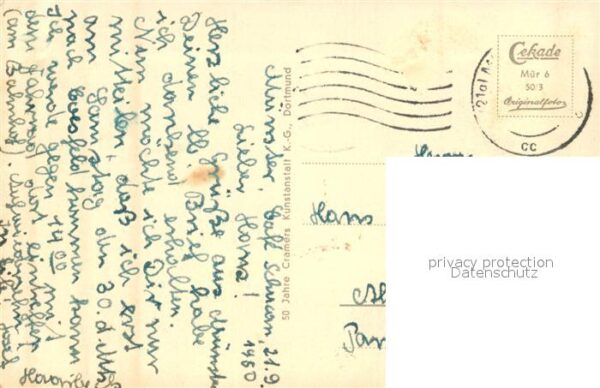 Münster, Café Schucan, 21.9.
1960
Lieber Hans!
Herzliche Grüße aus Münster
Deinen lb. Brief habe
ich dankend erhalten.
Nun möchte ich Dir nur
mitteilen, daß ich erst
am Samstag den 30. d. Mts.
nach Coesfeld kommen kann
Ich werde gegen 14.00 mit
dem dort eintreffen
(am Bahnhof).
50 Jahre Cramers Kunstanstalt K.-G., Dortmund
Cekade
Mür 6
50/3
Originalfoto
cc
Hans
privacy protection
Datenschutz